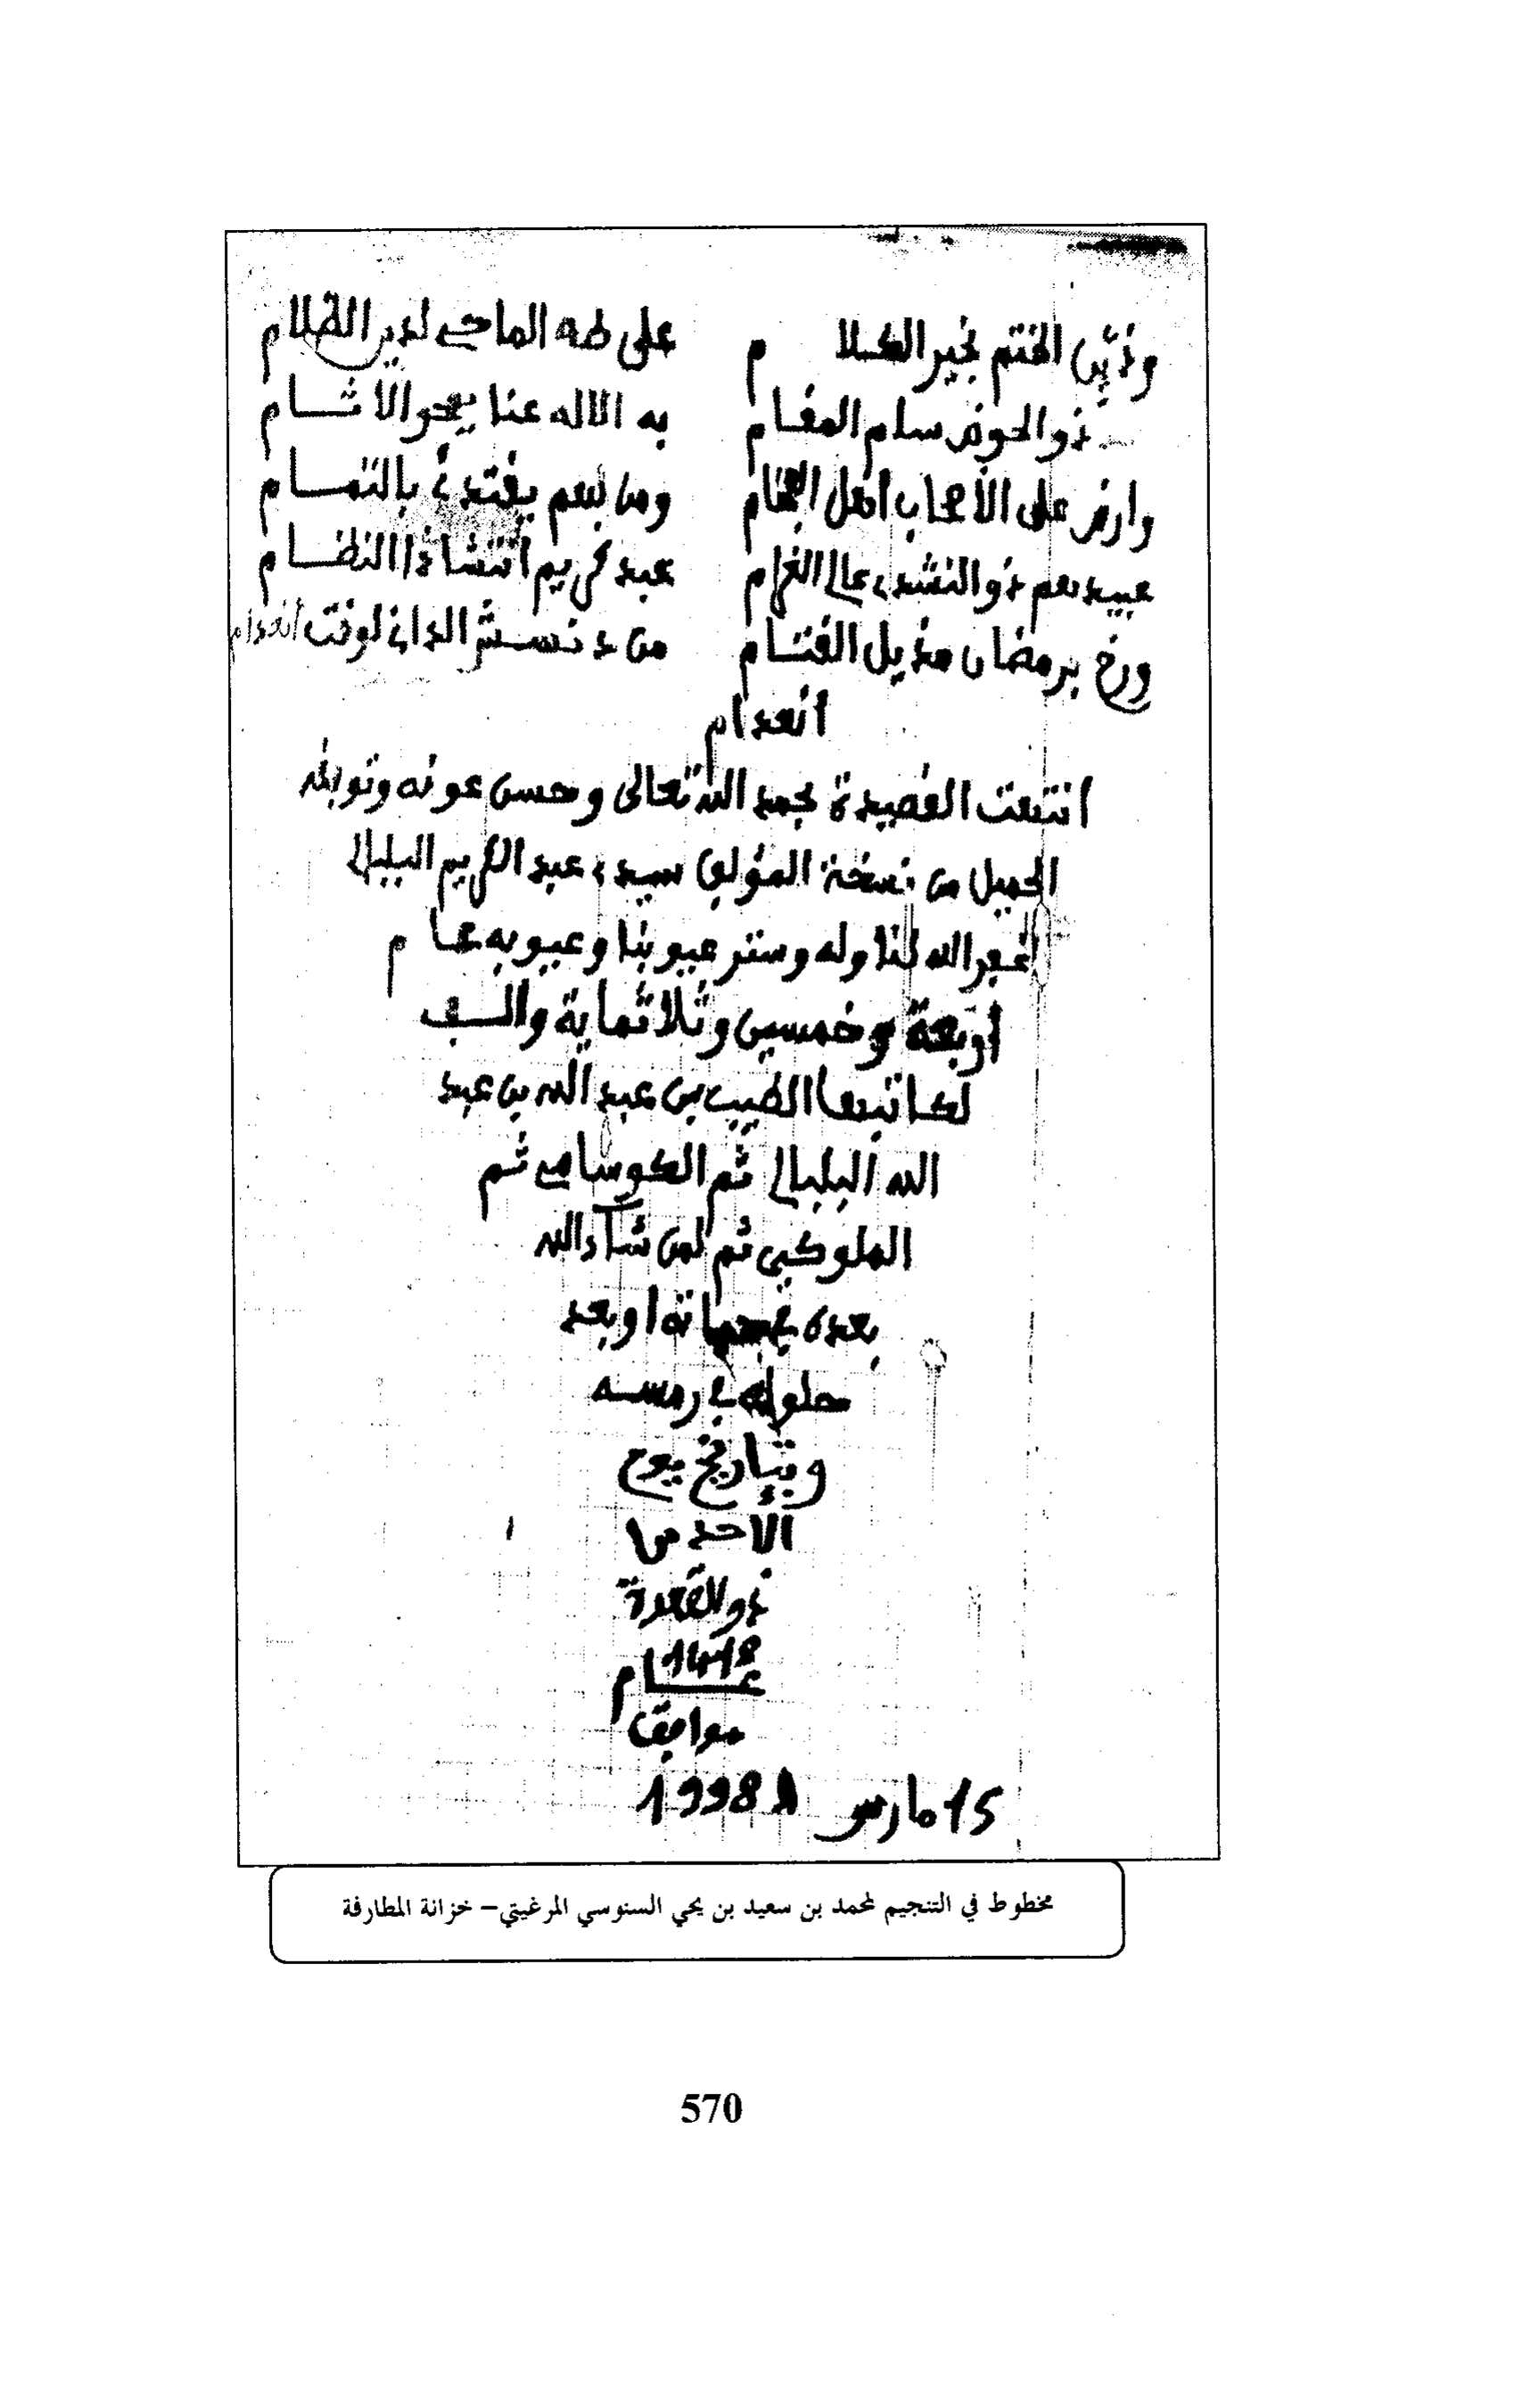 وزين الختم بخير الكلام على طه الماحي لدير الظلام
ذو الحوض سلم المقام به الاله عنا يمحو الاثام
وارض على الأصحاب أهل ومن لهم يقتدي بالتمام
عبيدهم ذو النشد عالي الغرام عبد كريم أنشأ ذا النظام
ورخ برمضان مذيل من لوقت أنعدام
أنعدام
انتهت القصيدة بحمد الله تعالى وحسن عونه وتوفيقه
الجميل من نسخة المؤلف سيدي عبد الكريم البلبالي
غفر الله لنا وله وستر عيوبنا وعيوبه عام
أربعة وخمسين وثلاثماية والف
لكاتبها الطيب بن عبد الله بن عبد
الله البلبالي ثم الكوسامي ثم
الملوكي ثم لمن شاء الله
بعده في حياته او بعد
حلوله في رمسه
وبتاريخ يوم
الأحد من
ذو القعدة
1418
عام
موافق
15 مارس 1998
مخطوط في التنجيم لمحمد بن سعيد بن يحي السنوسي المرغيتي– خزانة المطارفة
570